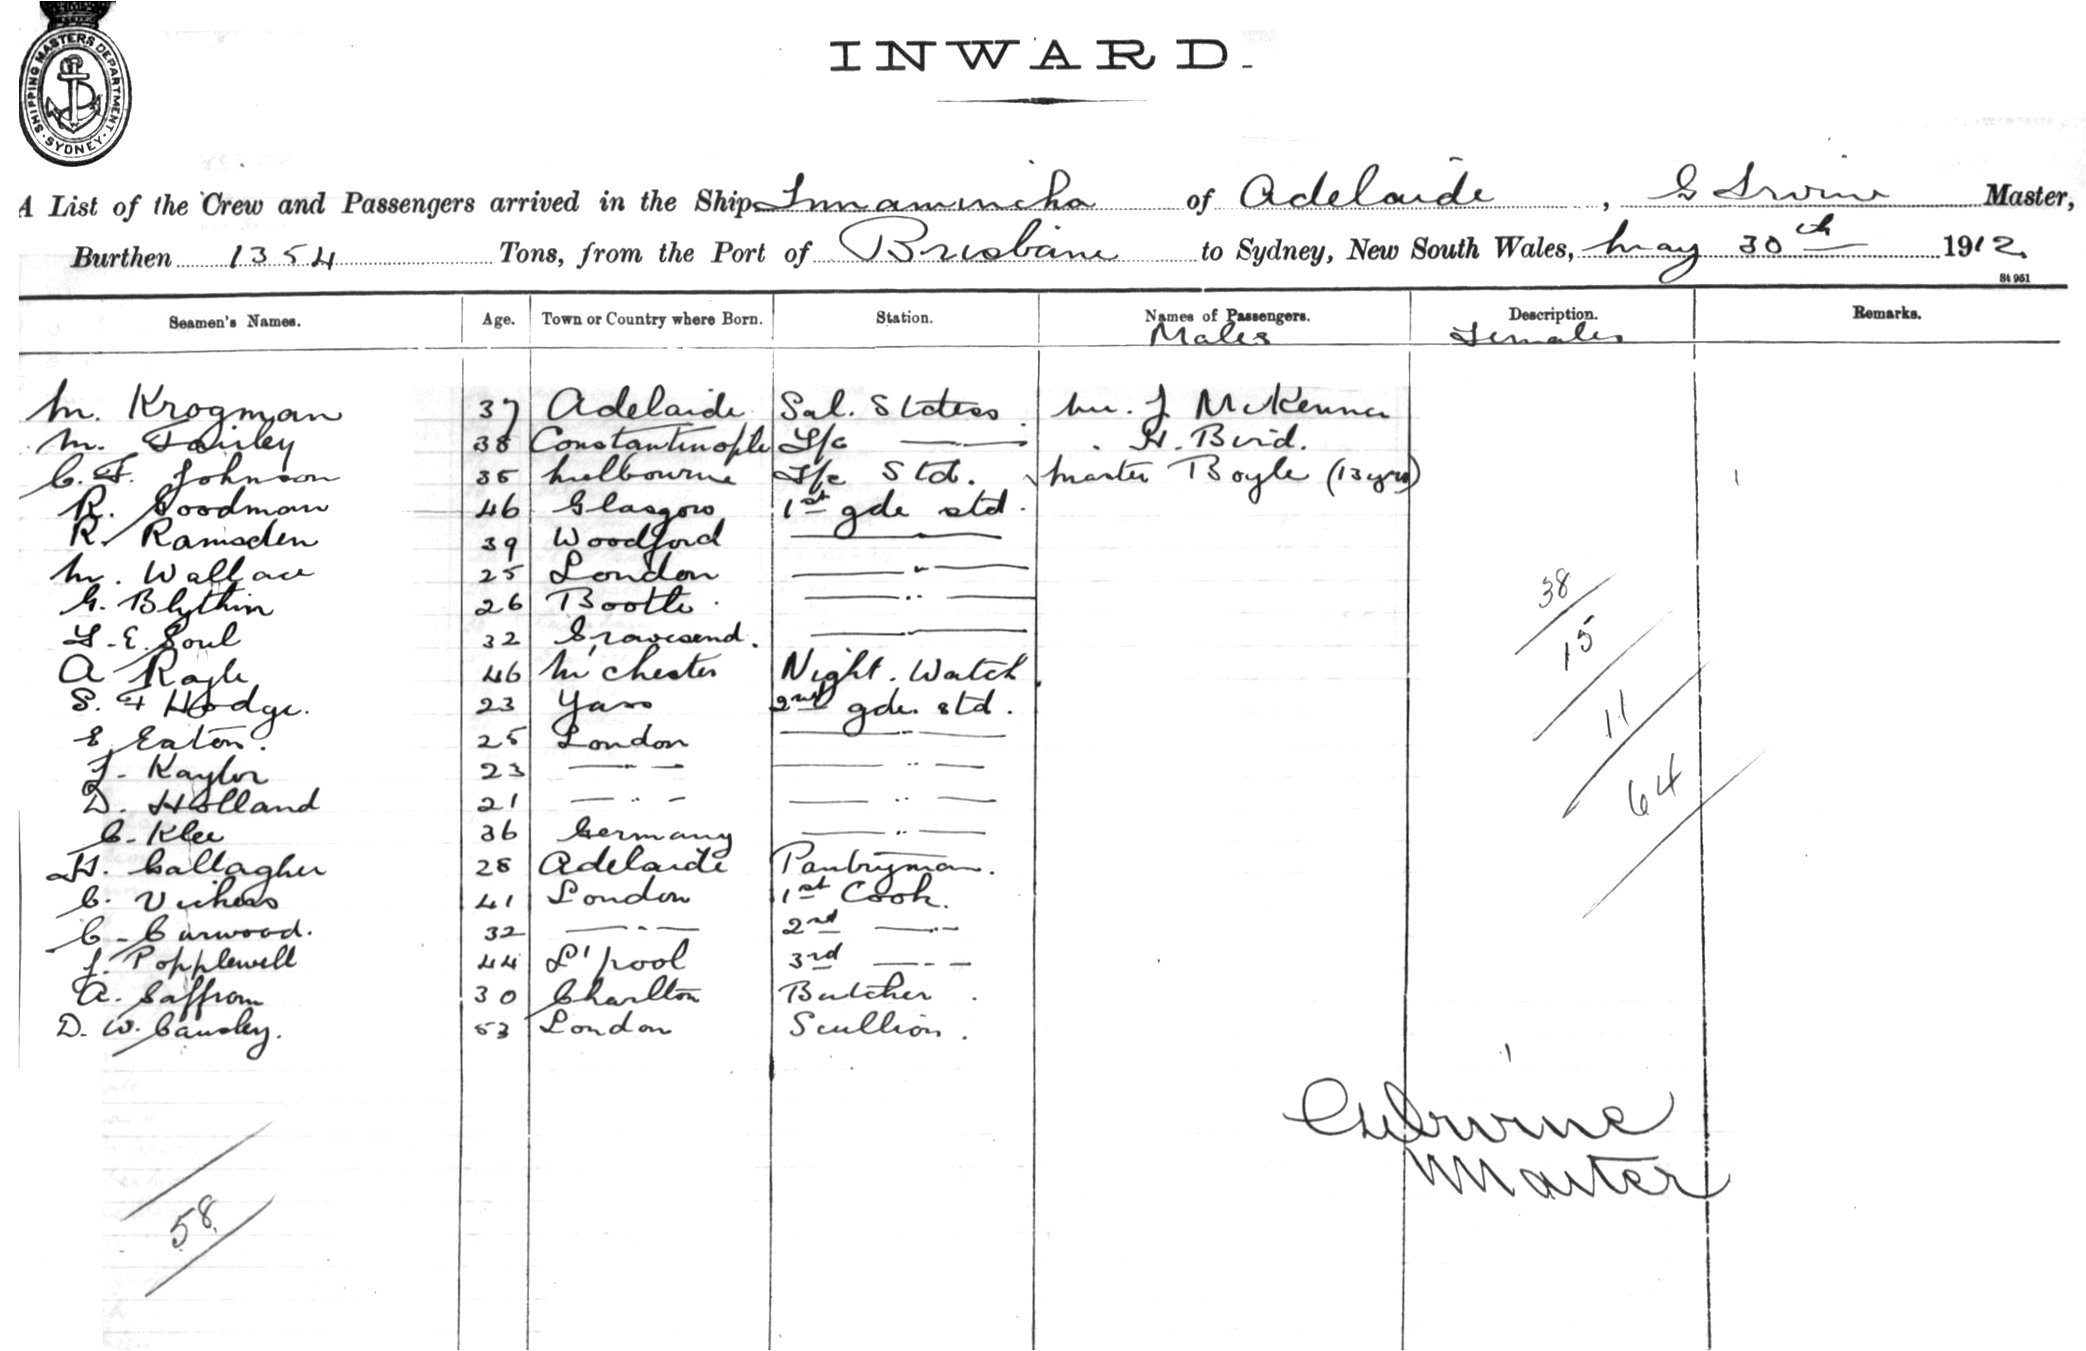 SHIPPING MASTERS DEPARTMENT
SYDNEY
INWARD.
A List of the Crew and Passengers arrived in the Ship Innamincka of Adelaide, G Irvine Master,
Burthen 1354 Tons, from the Port of Brisbane to Sydney, New South Wales, May 30th 1912
St 951
Seamen's Names. Age. Town or Country where Born. Station. Names of Passengers. Description. Remarks.
Males Females
M. Krogman 37 Adelaide Sal. Stdess. Mr. J McKenna
M. Fairley 38 Constantinople F/c —"— " H. Bird.
C. F. Johnson 35 Melbourne F/c Std. Master Boyle (13 yrs)
R. Goodman 46 Glasgow 1st gde std.
R. Ramsden 39 Woodford —"—
M. Wallace 25 London —"—
G. Blythin 26 Bootle. —"—
F. E. Soul 32 Gravesend. —"—
A 46 M'chester Night. Watch
S. F Hodge. 23 Yass 2nd gde. std.
E Eaton. 25 London —"—
J. Kaylor 23 —"— —"—
D. Holland 21 —"— —"—
C. Klee 36 Germany —"—
H. Gallagher 28 Adelaide Pantryman.
C. 41 London 1st Cook.
C. Curwood. 32 —"— 2nd —"—
J. Popplewell 44 L'pool 3rd —"—
A. Saffrom 30 Charlton Butcher.
D. W. Causley. 53 London Scullion.
38
15
11
64
Irvine
Master
58